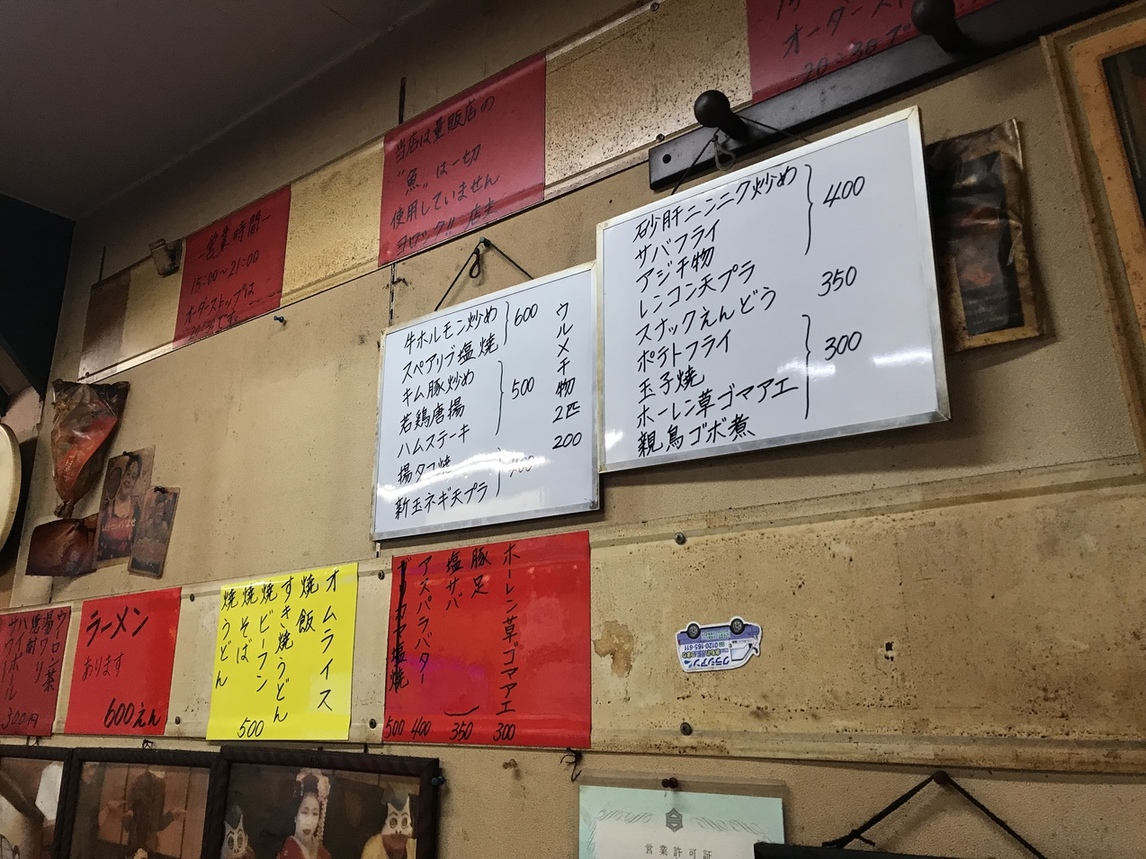 営業時間
15:00〜21:00
オーダーストップは
当店は量販店の
"魚"は一切
使用していません
店主
オーダースト
20:30
牛ホルモン炒め
スペアリブ塩焼
600
キム豚炒め
若鶏唐揚
ハムステーキ
500
揚タコ焼
新玉ネギ天プラ
400
ウルメ干物2匹
200
砂肝ニンニク炒め
サバフライ
アジ干物
400
レンコン天プラ
350
スナックえんどう
ポテトフライ
玉子焼
ホーレン草ゴマアエ
親鳥ゴボ煮
300
ウーロン茶
300円
ラーメン
あります
600えん
オムライス
焼飯
すき焼うどん
焼ビーフン
焼そば
焼うどん
500
ホーレン草ゴマアエ
300
豚足
塩サバ
350
アスパラバター
400
塩焼
500
クラシアン
営業許可証